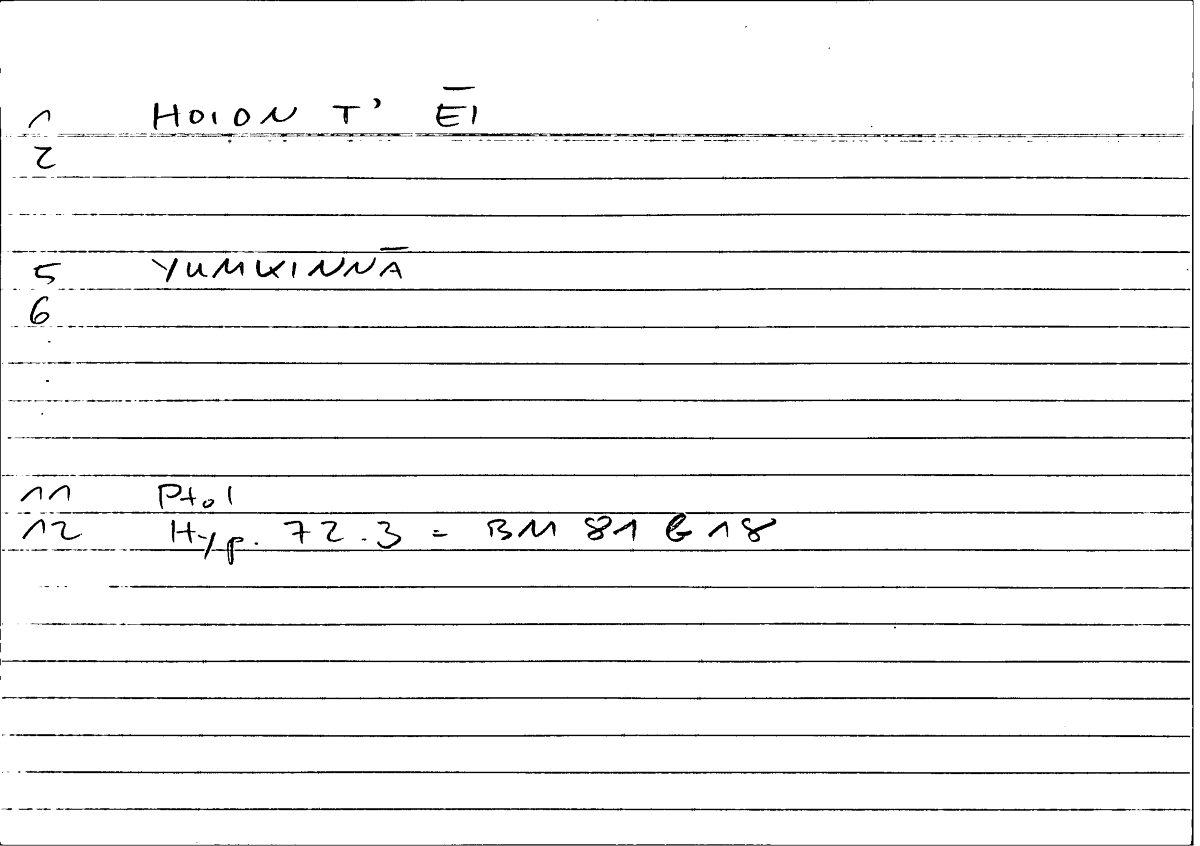 1 HOION T' ĒI
2
5 YUMKINNĀ
6
.
.
.
11 Ptol
12 Hyp. 72.3 = BM 81 6 18